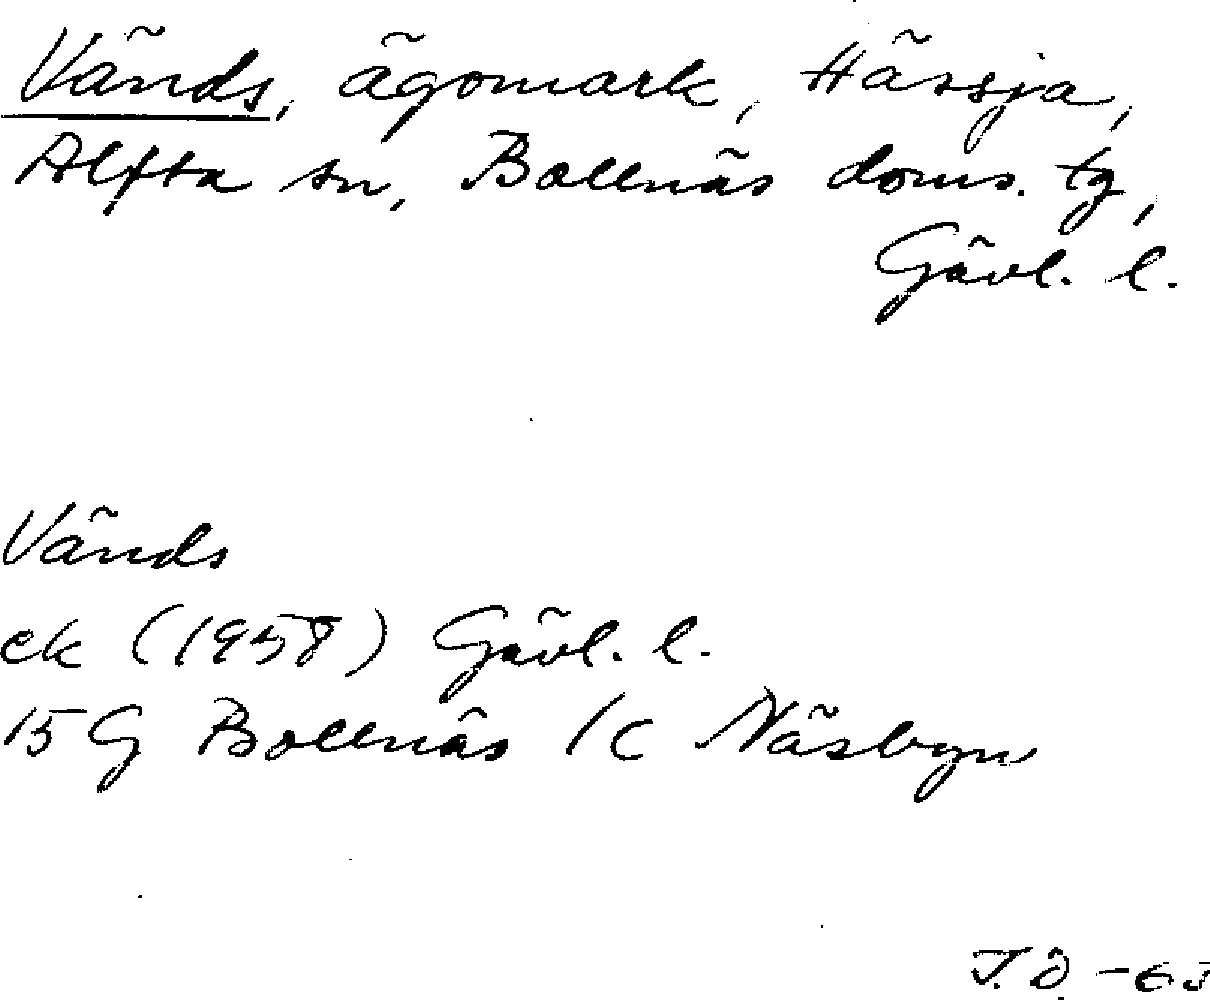 Vänds, ägomark, Hässja,
Alfta sn, Bollnäs doms. tg,
Gävl. l.
Vänds
ek (1958) Gävl. l.
15 G Bollnäs 1c Näsbyn